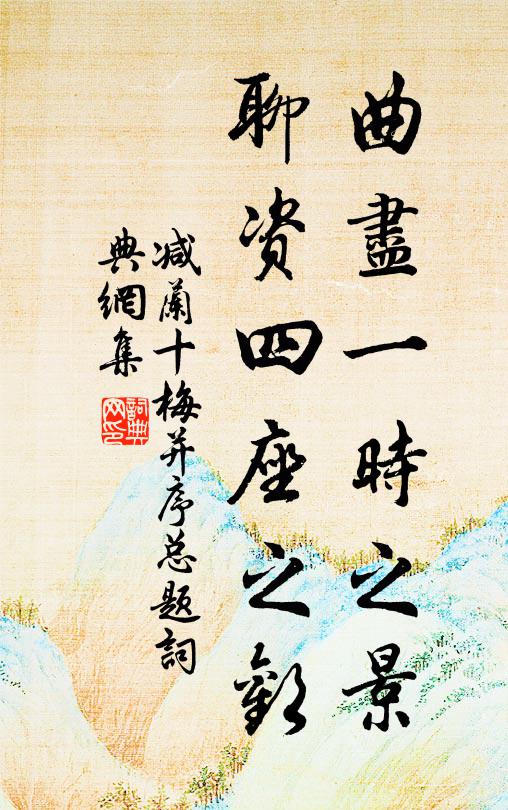 曲盡一時之景
聊資四座之歡
减蘭十梅并序总题詞
典網集
詞典网印